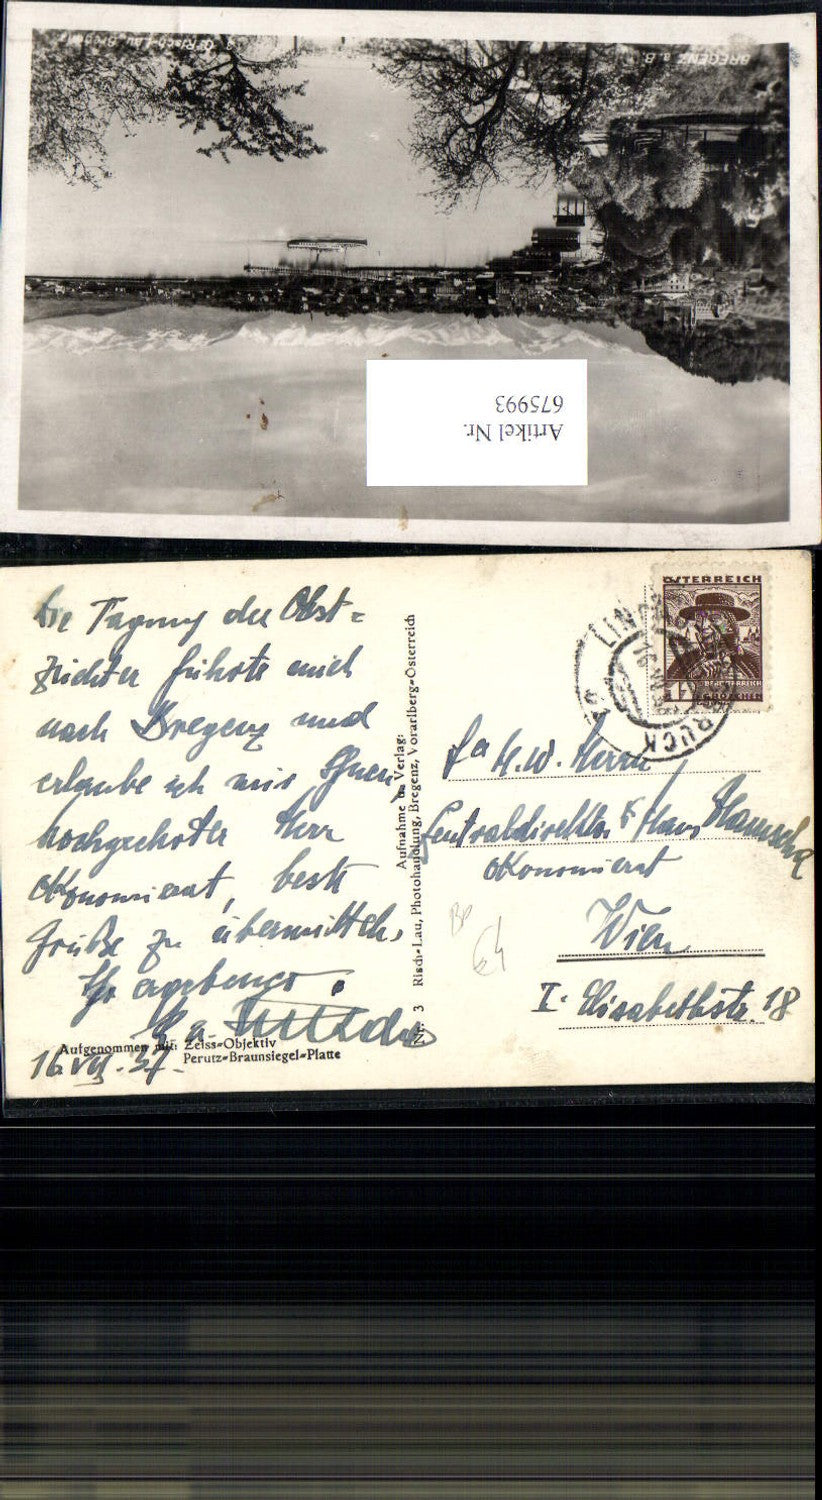 BREGENZ a. B.
3 Risch-Lau, BREGENZ
Artikel Nr.
675993
die Tagung der Obst=
züchter führte mich
nach Bregenz und
erlaube ich mir Ihnen,
hochgeehrter Herr
Ökonomierat, beste
Grüße zu übermitteln.
Ihr ergebenst
16.VII.37.
Aufgenommen mit: Zeiss-Objektiv
Perutz-Braunsiegel-Platte
Aufnahme u. Verlag:
Nr. 3 Risch-Lau, Photohandlung, Bregenz, Vorarlberg-Österreich
ÖSTERREICH
12
GROSCHEN
H.W. Herrn
Zentraldirektor Hans
Ökonomierat
Wien
I. Elisabethstr. 18
64